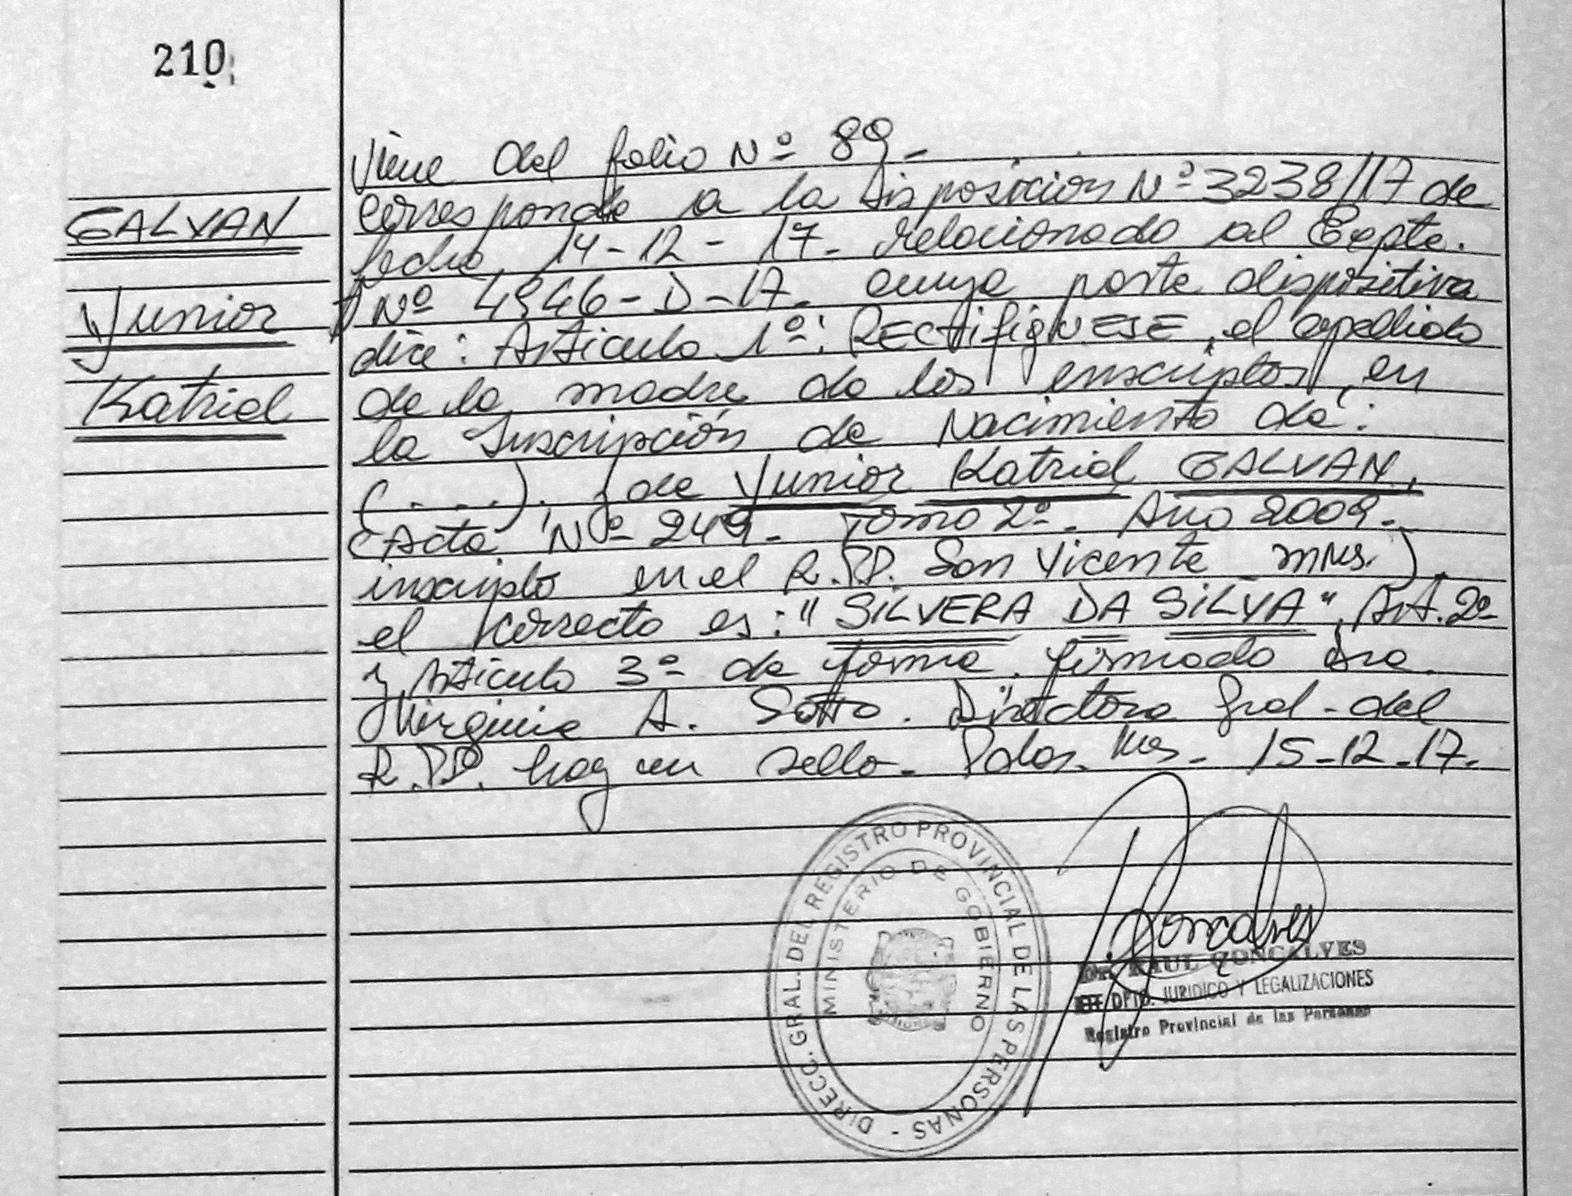 210
GALVAN
Yunior
Katriel
Viene del folio Nº 89-
Corresponde a la Disposicion Nº 3238/17 de
fecha 14-12-17- relacionado al Expte.
Nº 4946-D-17- cuya parte dispositiva
dice: Articulo 1º: RECtifiqUESE, el apellido
de la madre de los inscriptos, en
la Inscripción de Nacimiento de:
(.....), de Yunior Katriel GALVAN,
(Acta Nº 249- Tomo 2º- Año 2009-
inscripto en el R.PP. San Vicente Mnes.)
el correcto es: "SILVERA DA SILVA", Art. 2º
y Articulo 3º de forma. firmado Dra.
Virginia A. Sotto. Directora Gral- del
R.PP. hay un sello- Pdas. Mes- 15-12-17-
DIRECC. GRAL. DEL REGISTRO PROVINCIAL DE LAS PERSONAS -
MINISTERIO DE GOBIERNO
Goncalves
Dr. RAUL GONCALVES
JEFE DPTO. JURIDICO Y LEGALIZACIONES
Registro Provincial de las Personas